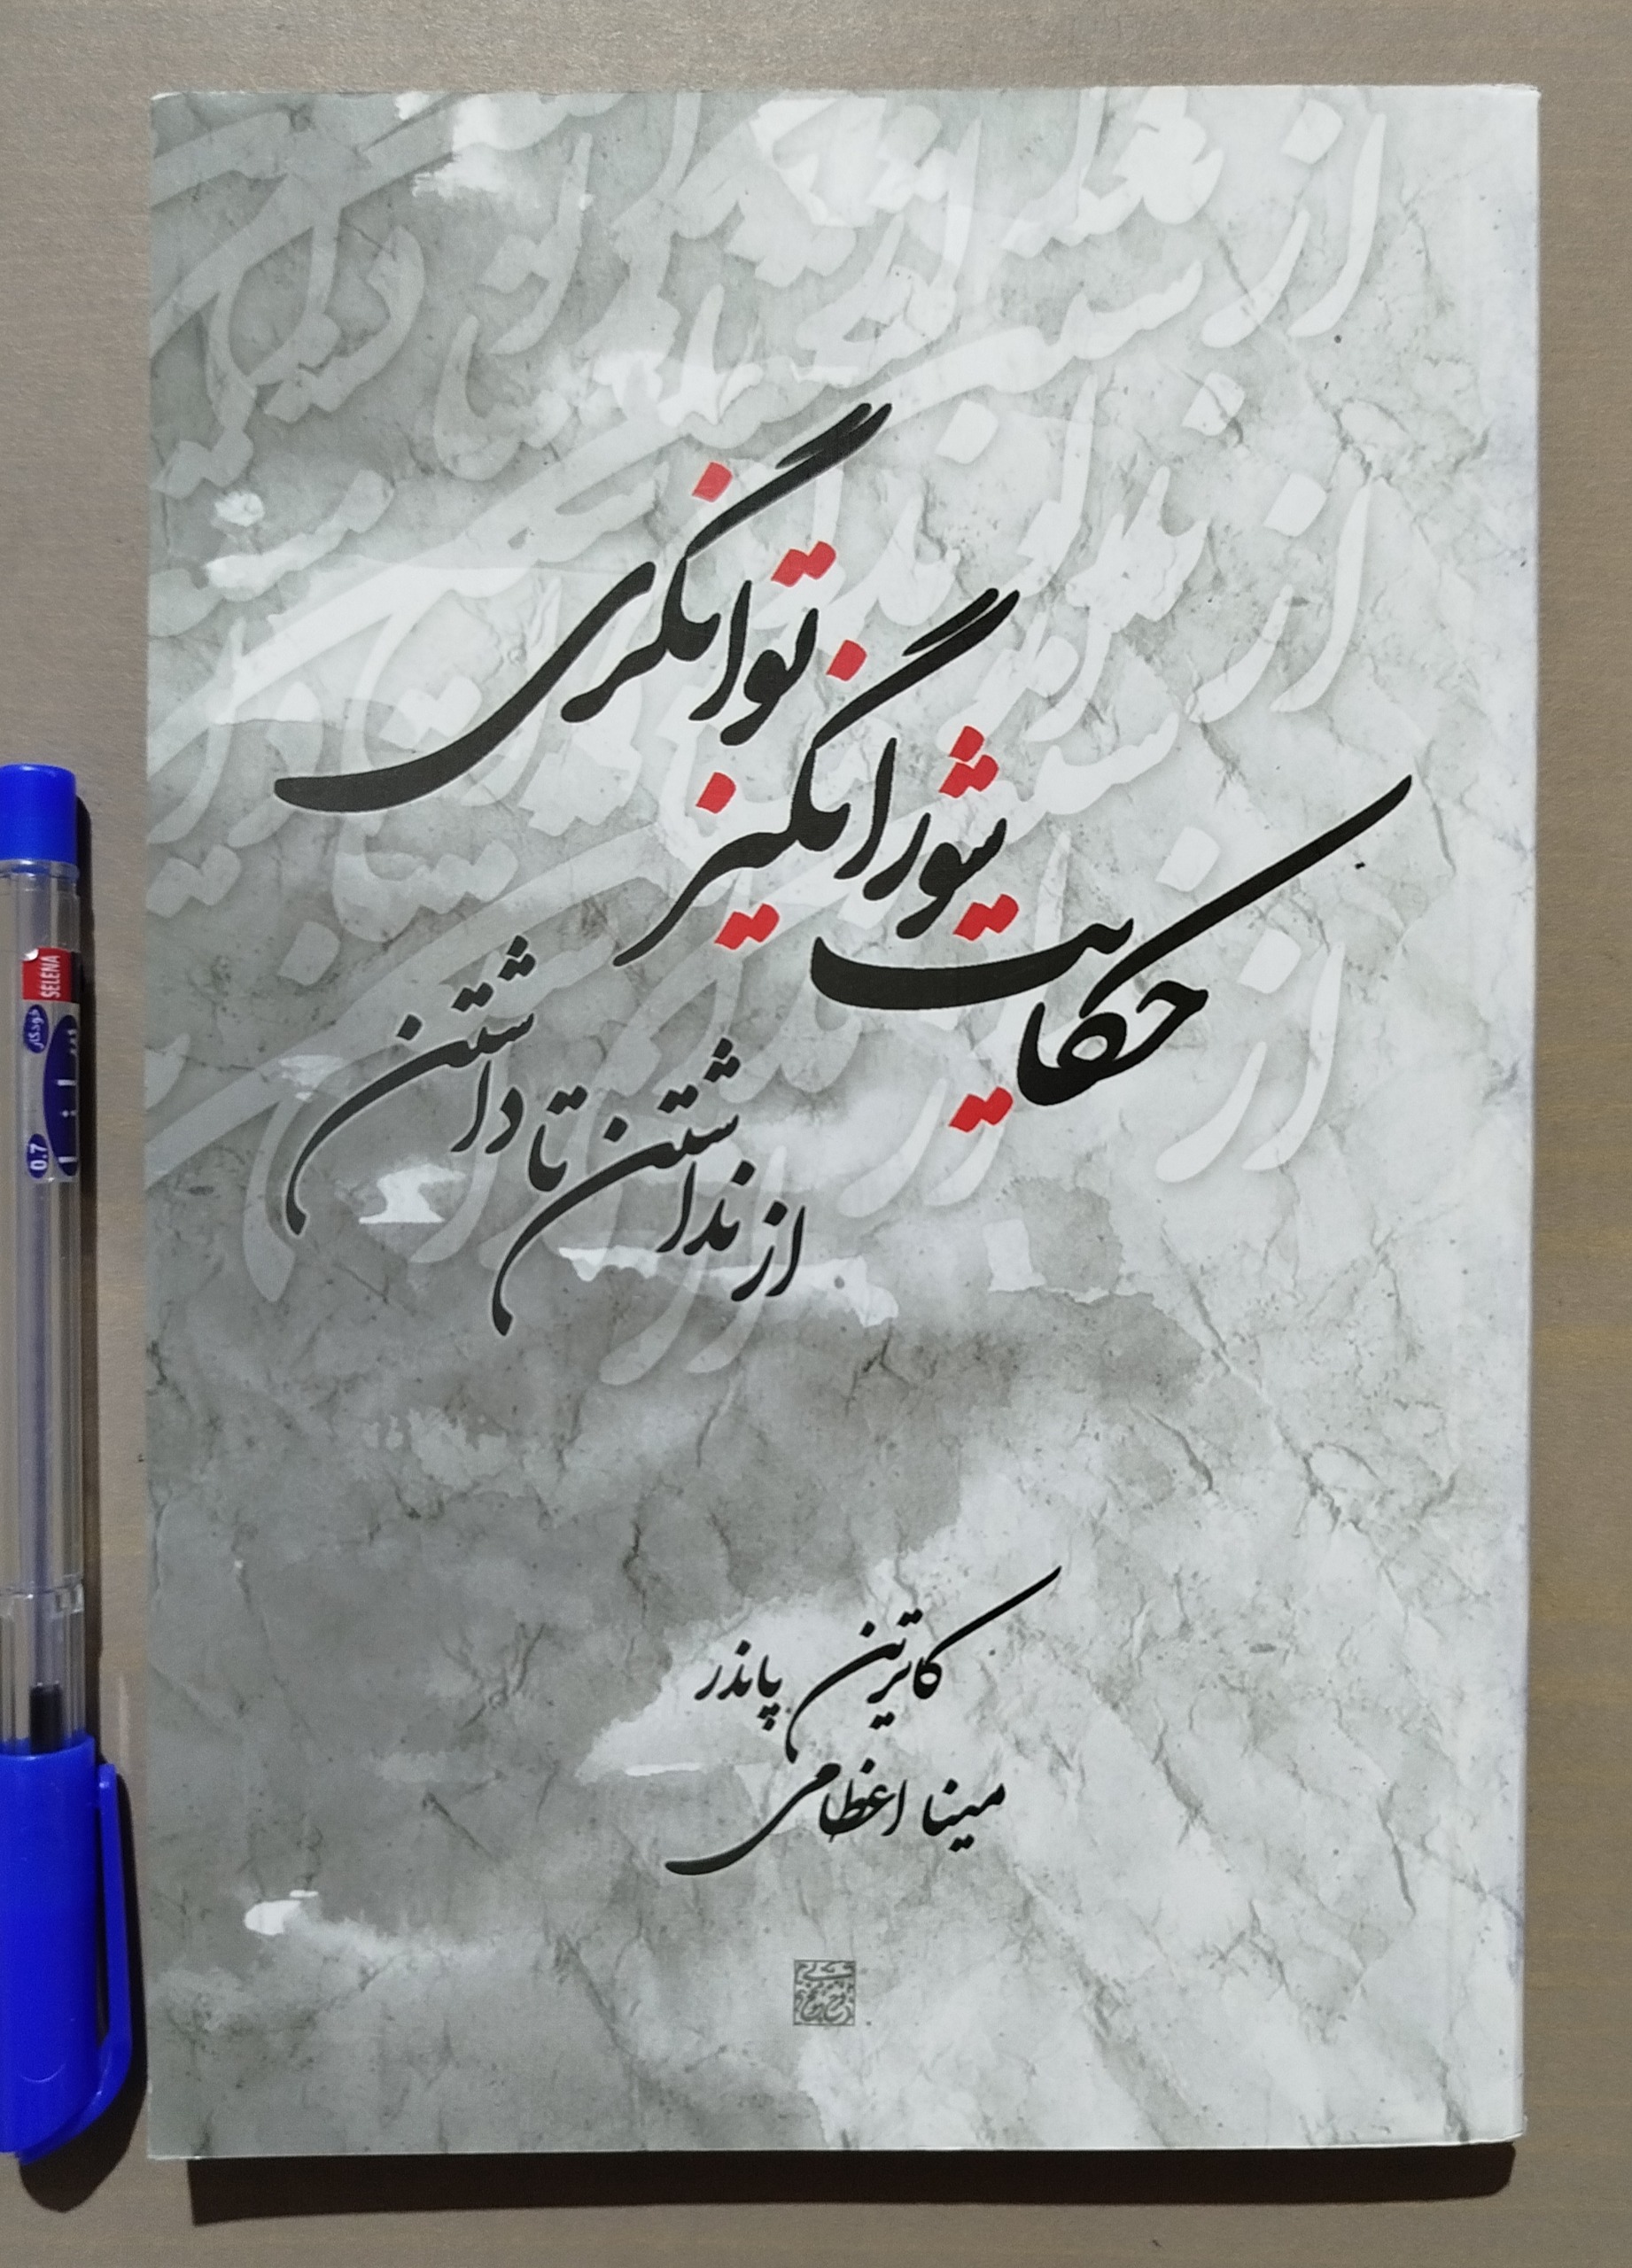 حکایت شورانگیز توانگری
از نداشتن تا داشتن
کاترین پاندر
مینا اعظامی
SELENA
خودکار
سلنا
0.7